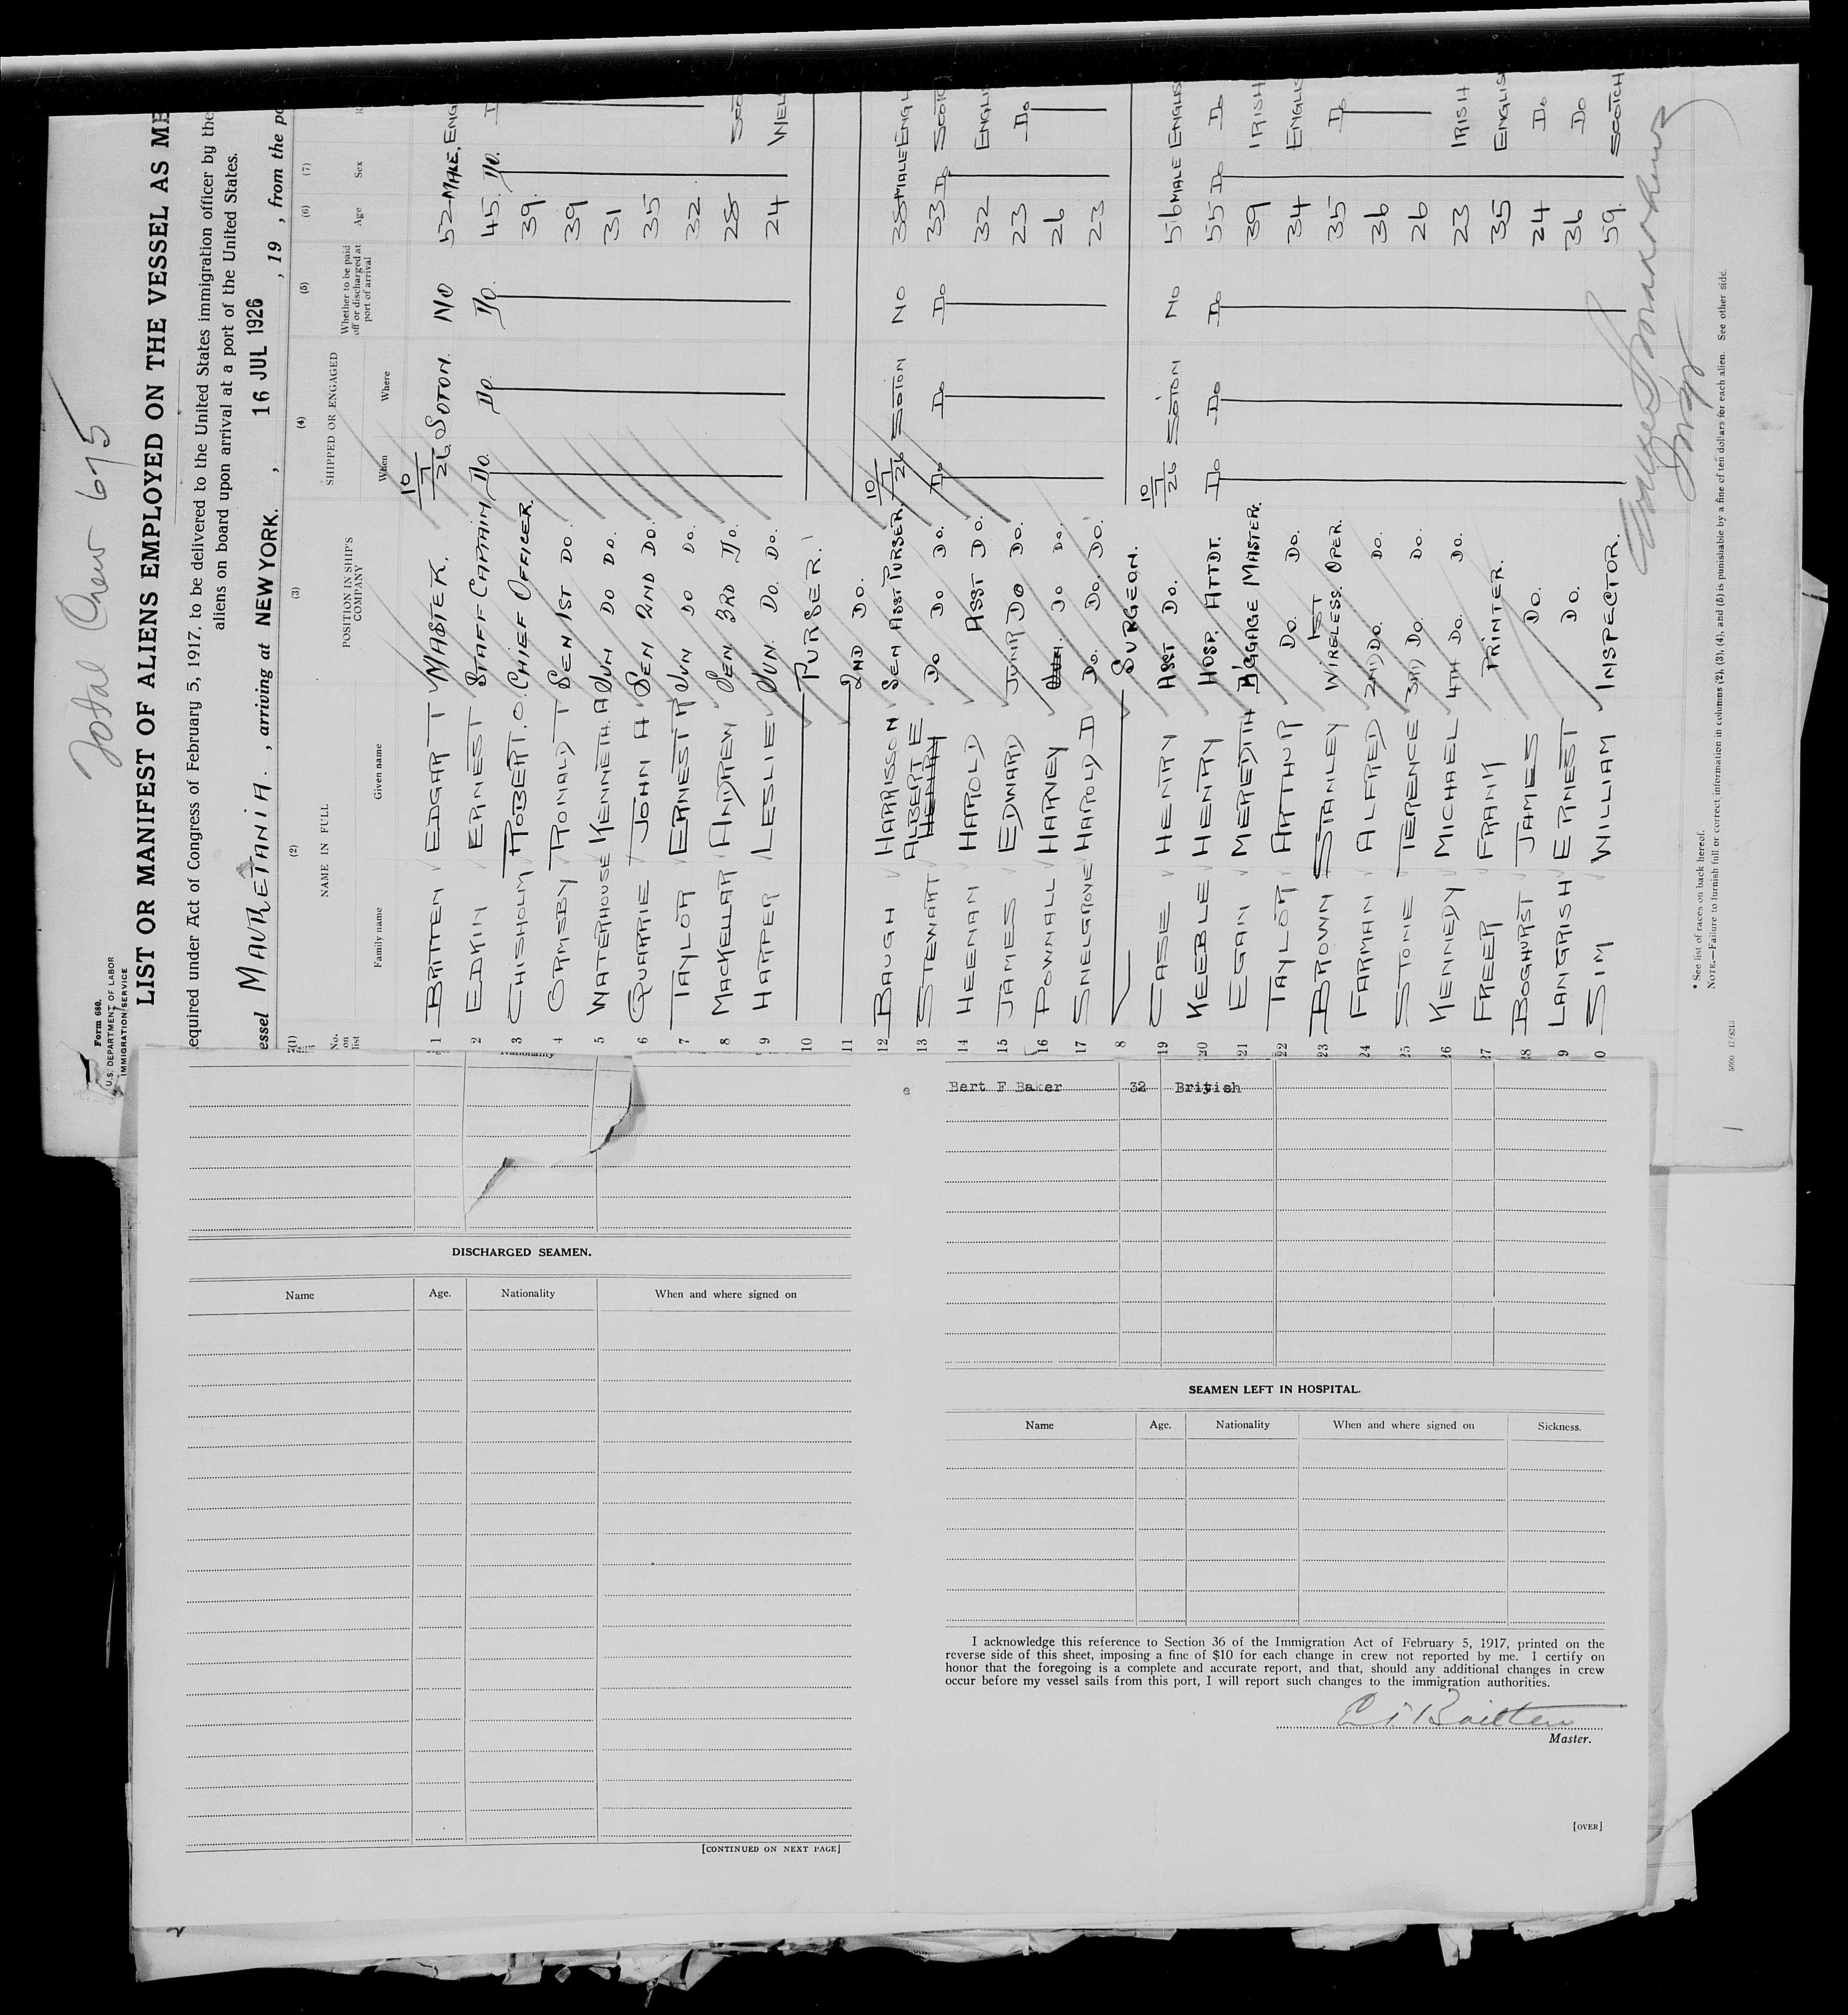 Total Crew 675
Form 680.
U.S. DEPARTMENT OF LABOR
IMMIGRATION SERVICE
LIST OR MANIFEST OF ALIENS EMPLOYED ON THE VESSEL AS ME
equired under Act of Congress of February 5, 1917, to be delivered to the United States immigration officer by the
aliens on board upon arrival at a port of the United States.
essel MAURETANIA. , arriving at NEW YORK. , 16 JUL 1926 , 19 , from the po
(1) (2) (3) (4) (5) (6) (7)
No. on list NAME IN FULL POSITION IN SHIP'S COMPANY SHIPPED OR ENGAGED Whether to be paid off or discharged at port of arrival Age Sex
Family name Given name When Where
1 BRITTEN EDGAR T MASTER. 10/7/26 SOTON. NO 52 MALE, ENG
2 EDKIN ERNEST STAFF CAPTAIN DO. DO. DO. 45. DO.
3 CHISHOLM ROBERT. O. CHIEF OFFICER. 39.
4 ORMSBY RONALD T SEN 1ST DO. 39
5 WATERHOUSE KENNETH. A JUN DO DO. 31
6 QUARRIE JOHN A SEN 2ND DO. 35
7 TAYLOR ERNEST R JUN DO DO. 32.
8 MACKELLAR ANDREW SEN. 3RD DO. 28 SCO
9 HARPER LESLIE JUN. DO. DO. 24 WEL
10 PURSER.
11 2ND DO.
12 BAUGH HARRISSON SEN ASST PURSER. 10/7/26 SOTON NO 38 MALE ENGL
13 STEWART ALBERT E HENRY DO DO DO. DO DO DO 33 DO SCOTC
14 HEENAN HAROLD ASST DO. 32 ENGLIS
15 JAMES EDWARD JUNR DO DO. 23 DO
16 POWNALL HARVEY DO DO. 26
17 SNELGROVE HAROLD D DO. DO. DO. 23
8 SURGEON.
19 CASE HENRY ASST DO. 10/7/26 SOTON NO 56 MALE ENGLIS
20 KEEBLE HENRY HOSP. ATTDT. DO DO DO 55 DO DO
21 EGAN MEREDITH B'GGAGE MASTER. 39 IRISH
22 TAYLOR ARTHUR DO. DO. 34 ENGLIS
23 BROWN STANLEY 1ST WIRELESS. OPER. 35 DO
24 FARMAN ALFRED 2ND DO. DO. 36
25 STONE TERENCE 3RD DO. DO. 26
26 KENNEDY MICHAEL 4TH DO. DO. 23 IRISH
27 FREER FRANK PRINTER. 35 ENGLIS
28 BOGHURST JAMES DO. 24 DO
9 LANGRISH ERNEST DO. 36 DO
0 SIM WILLIAM INSPECTOR. 59. SCOTCH
* See list of races on back hereof.
NOTE.—Failure to furnish full or correct information in columns (2), (3), (4), and (5) is punishable by a fine of ten dollars for each alien. See other side.
Nationality
DISCHARGED SEAMEN.
Name Age. Nationality When and where signed on
[CONTINUED ON NEXT PAGE]
e Bert F Baker 32 Briyish
SEAMEN LEFT IN HOSPITAL.
Name Age. Nationality When and where signed on Sickness.
I acknowledge this reference to Section 36 of the Immigration Act of February 5, 1917, printed on the
reverse side of this sheet, imposing a fine of $10 for each change in crew not reported by me. I certify on
honor that the foregoing is a complete and accurate report, and that, should any additional changes in crew
occur before my vessel sails from this port, I will report such changes to the immigration authorities.
E T Britten
Master.
[OVER]